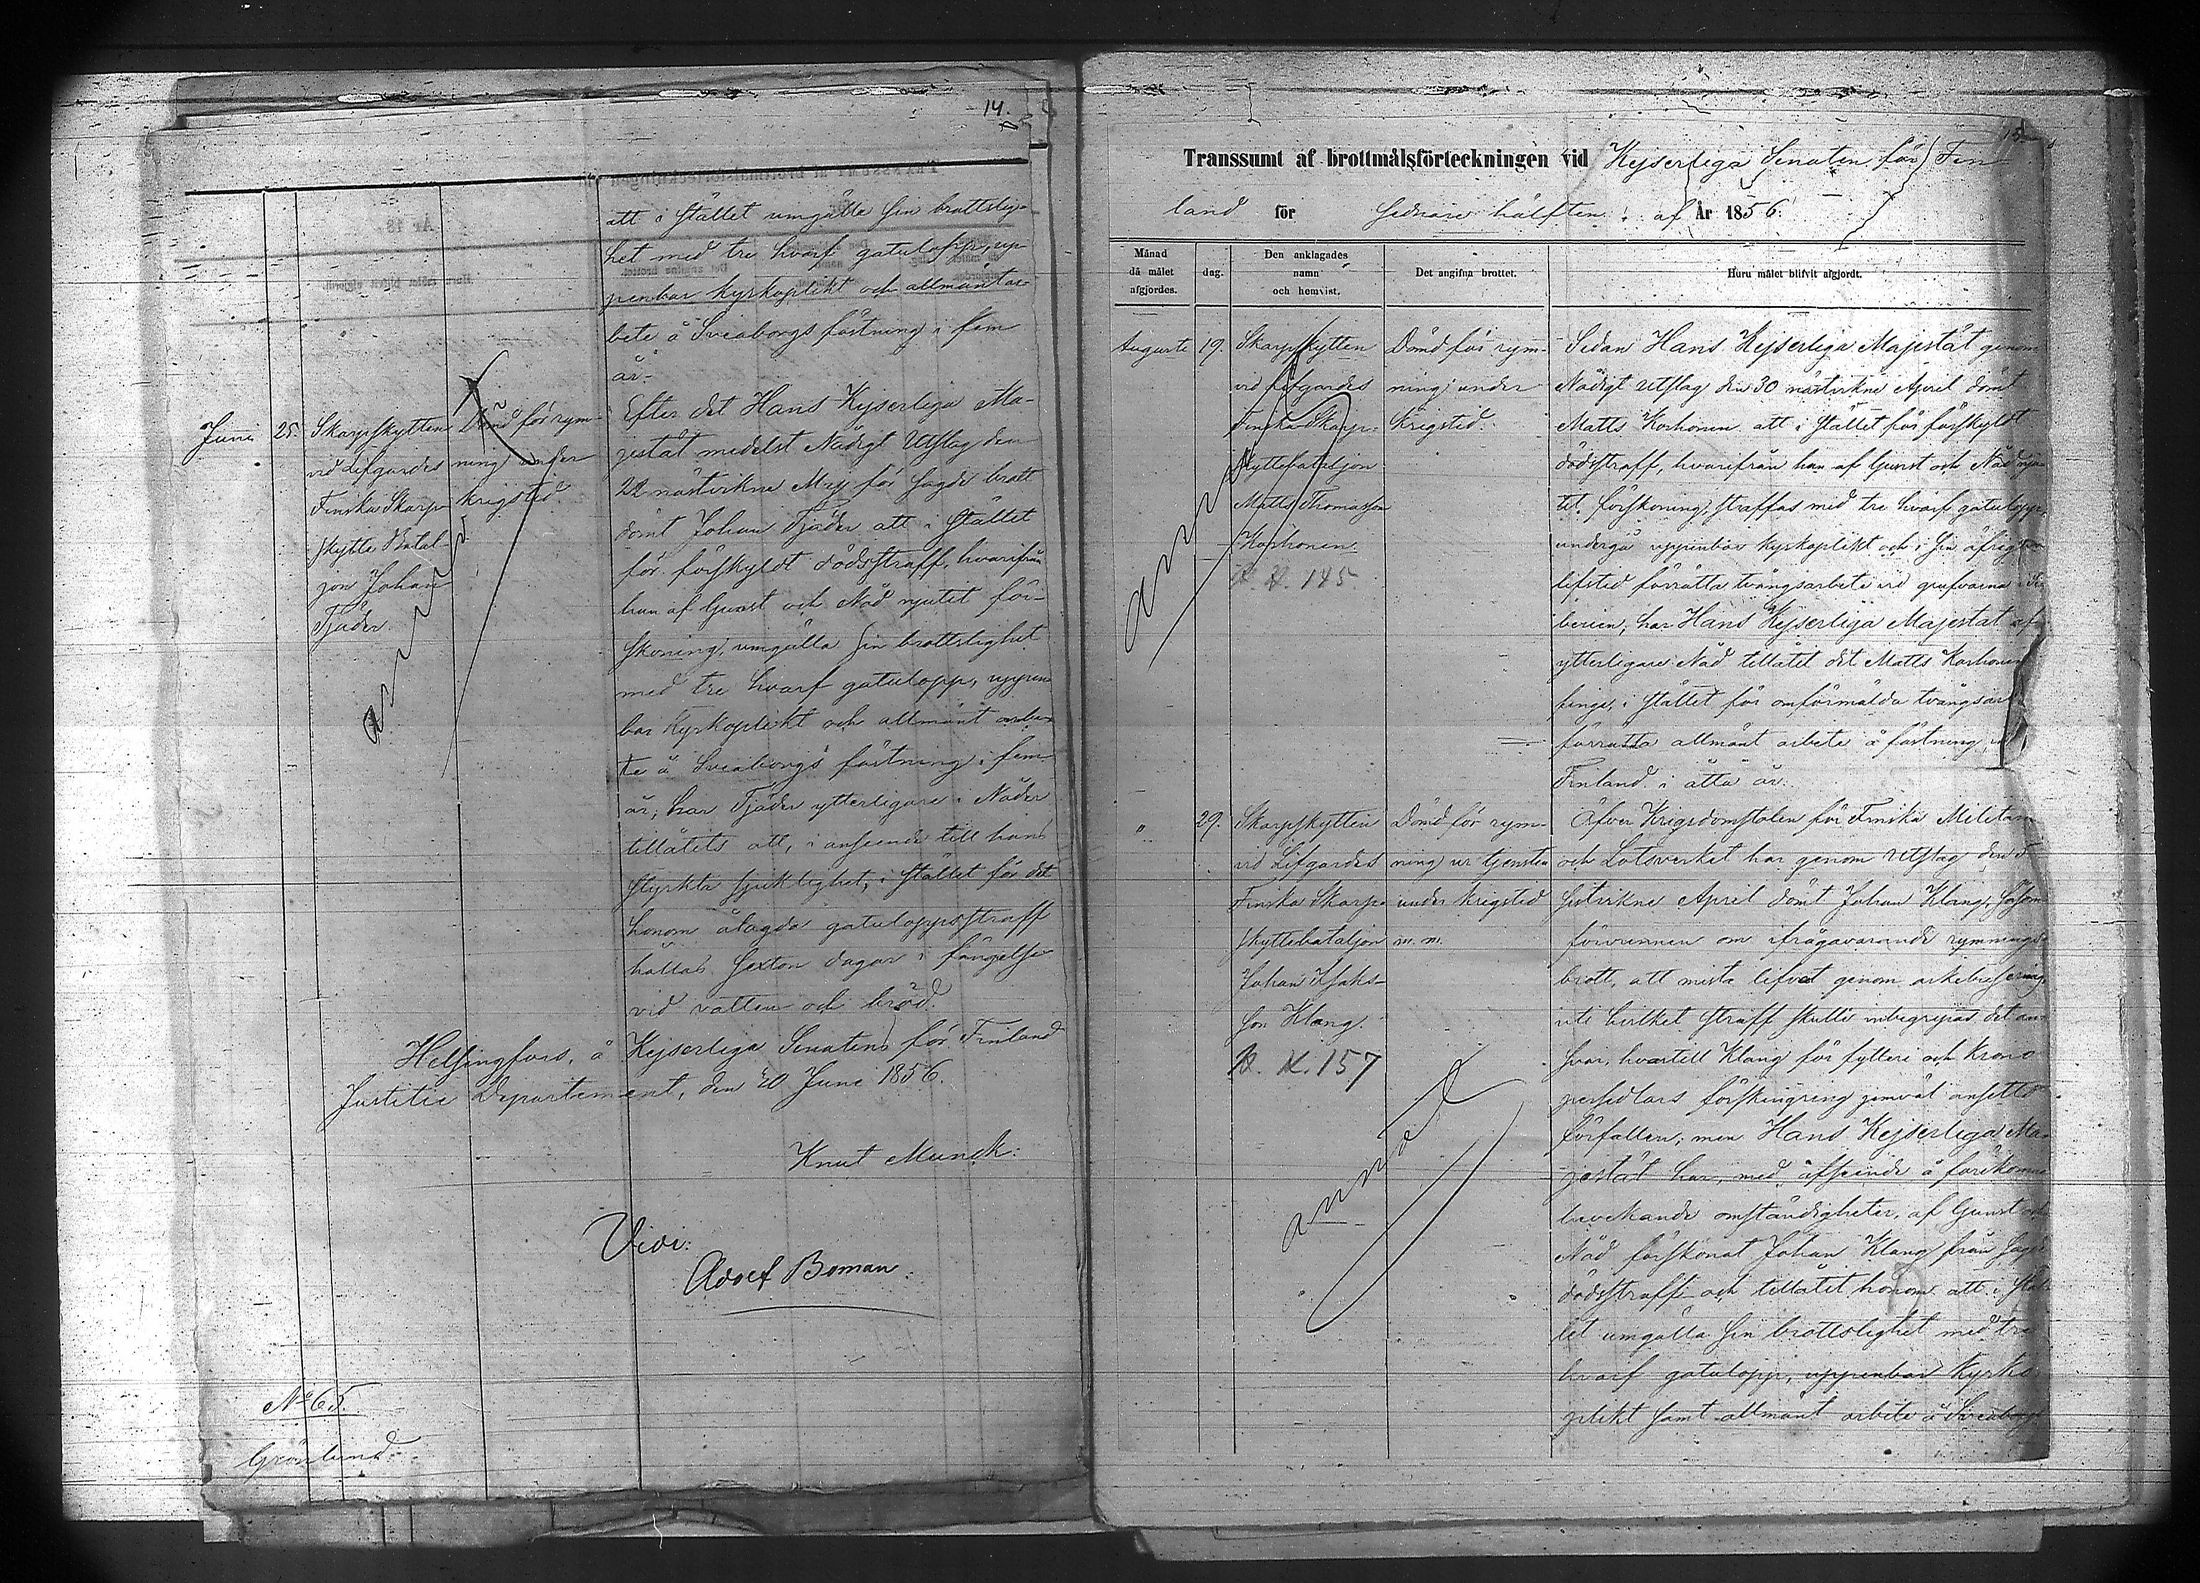 14.
att i stället umgälla sin brottslig-
het med tre hvarf gatulopp, up-
penbar kyrkoplikt och allmänt ar-
bete å Sveaborgs fästning i fem
år.
Juni 25.
Skarpskytten
vid Lifgardes
Finska Skarp-
skytte Batal-
jon Johan
Tjäder.
Dömd för rym-
ning under
krigstid.
Efter det Hans Kejserliga Ma-
jestät medelst Nådigt Utslag den
22 nästvikne Maj för sagde brott
dömt Johan Tjäder att i stället
för förskyldt dödsstraff, hvarifrån
han af Gunst och Nåd njutit för-
skoning, umgälla sin brottslighet
med tre hvarf gatulopp, uppen-
bar kyrkoplikt och allmänt arbe-
te å Sveaborgs fästning i fem
år, har Tjäder ytterligare i Nåder
tillåtits att, i anseende till hans
styrkta sjuklighet, i stället för det
honom ålagda gatuloppsstraff
hållas sexton dagar i fängelse
vid vatten och bröd.
Helsingfors, å Kejserliga Senatens för Finland
Justitie Departement, den 30 Juni 1856.
Knut Munck.
Vidi:
Adolf Boman.
No 65.
Grönlund
15
Transsumt af brottmålsförteckningen vid Kejserliga Senaten för Fin-
land för sednare hälften af År 1856.
Månad
då målet
afgjordes.
dag.
Den anklagades
namn
och hemvist.
Det angifna brottet.
Huru målet blifvit afgjordt.
Augusti 19.
Skarpskytten
vid Lifgardes
Finska Skarp-
skyttebataljon
Matts Thomasson
Korhonen.
N. 145
Dömd för rym-
ning under
krigstid.
Sedan Hans Kejserliga Majestät genom
Nådigt Utslag den 30 nästvikne April dömt
Matts Korhonen att i stället för förskyldt
dödsstraff, hvarifrån han af Gunst och Nåd nju-
tit förskoning, straffas med tre hvarf gatulopp,
undergå uppenbar kyrkoplikt och i sin öfriga
lifstid förrätta tvångsarbete vid grufvorna i Si-
berien, har Hans Kejserliga Majestät af
ytterligare Nåd tillåtit det Matts Korhonen
finge, i stället för omförmälda tvångsar
förrätta allmänt arbete å fästning i
Finland i åtta år.
" 29.
Skarpskytten
vid Lifgardes
Finska Skarp-
skyttebataljon
Johan Isaks-
son Klang.
N. 157
Dömd för rym-
ning ur tjensten
under krigstid
m. m.
Öfver Krigsdomstolen för Finska Militären
och Lotsverket har genom Utslag den
sistvikne April dömt Johan Klang, såsom
förvunnen om ifrågavarande rymnings-
brott, att mista lifvet genom arkebusering,
uti hvilket straff skulle inbegripas det an-
svar, hvartill Klang för fylleri och krono
persedlars förskingring jemväl ansetts
förfallen; men Hans Kejserliga Ma-
jestät har, med afseende å förekomne
bevekande omständigheter, af Gunst och
Nåd förskonat Johan Klang från sagde
dödsstraff och tillåtit honom att i stäl-
let umgälla sin brottslighet med tre
hvarf gatulopp, uppenbar kyrko-
plikt samt allmänt arbete å Sveaborgs